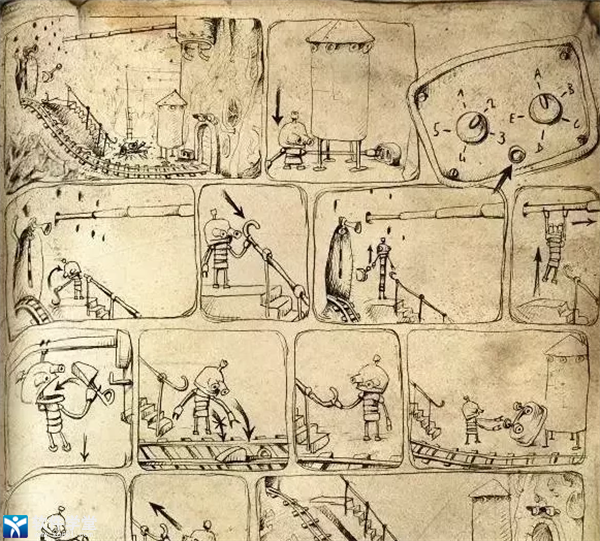 1 2
5 3
4
A B
E C
D